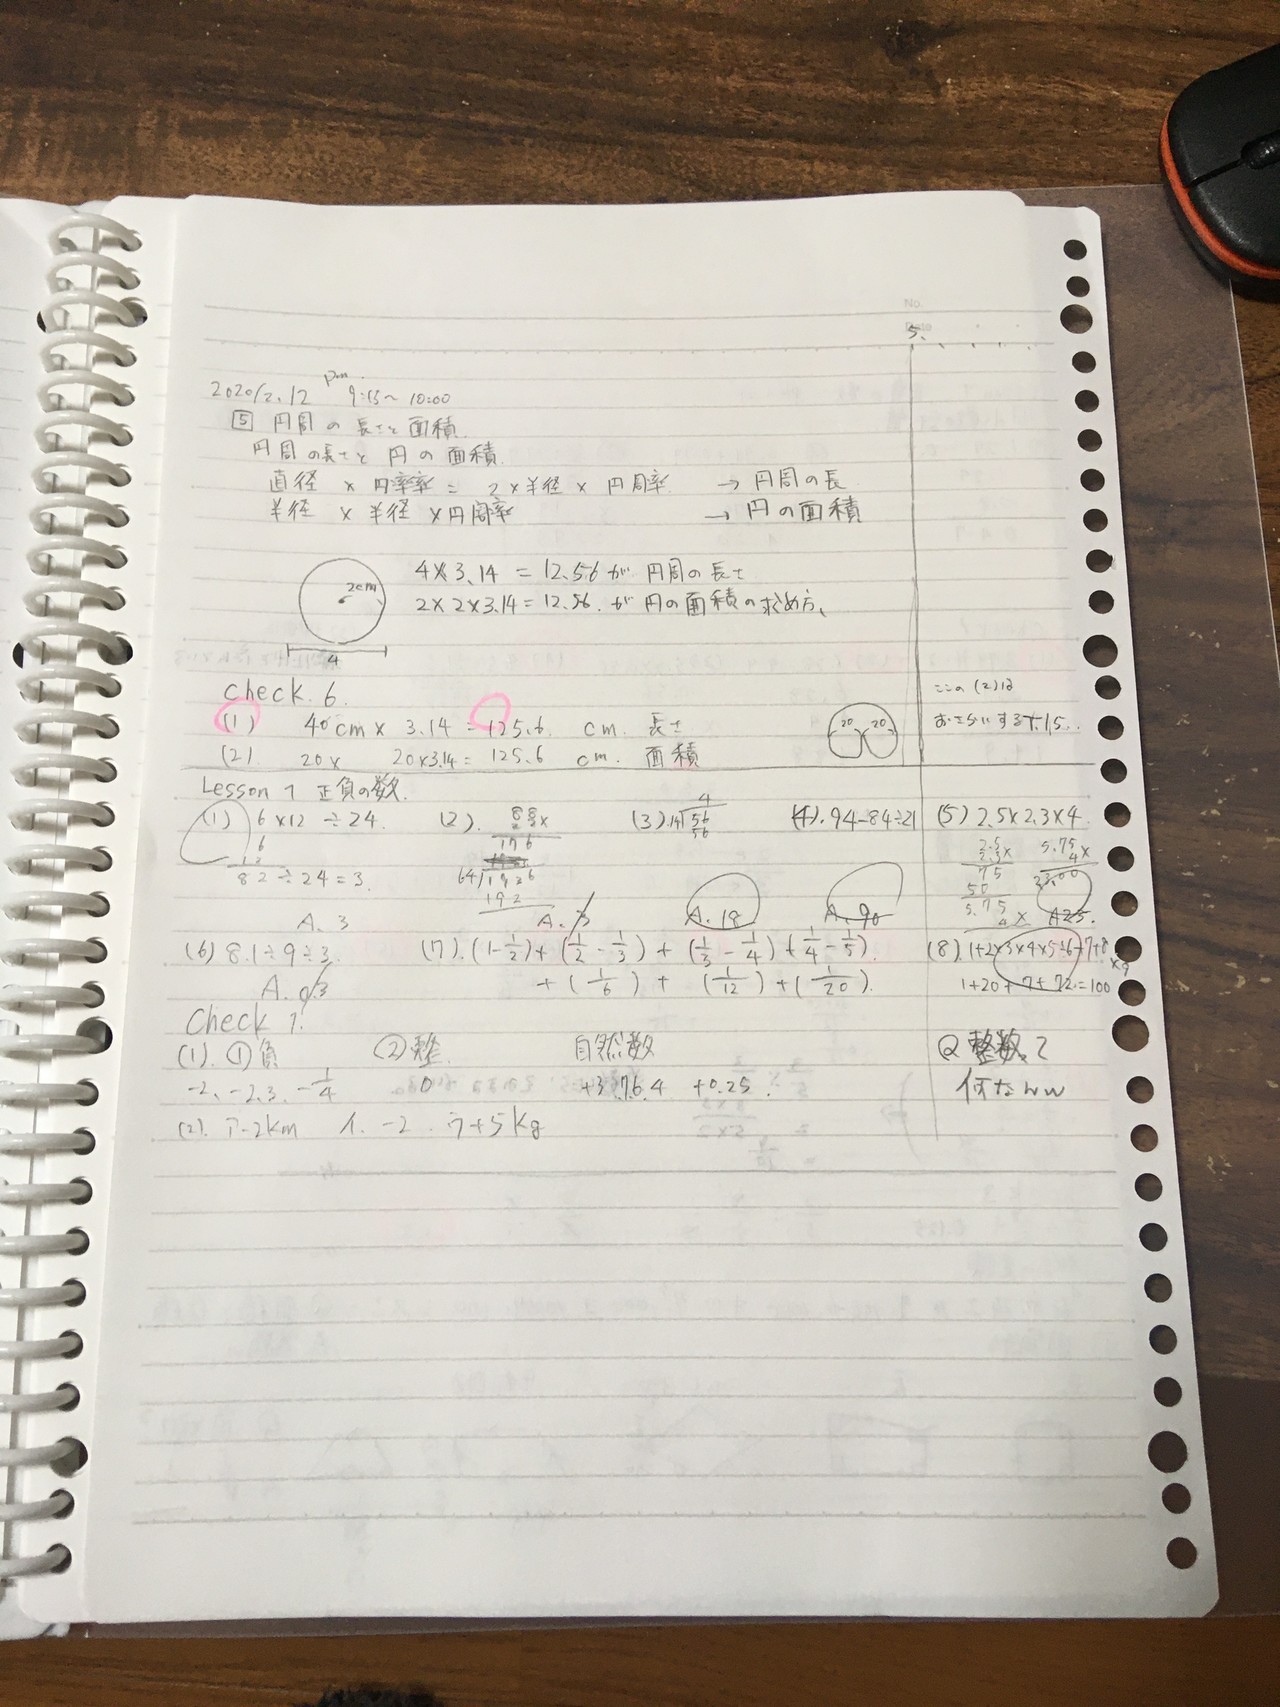 No.
5.
2020/2.12 pm 9:15〜10:00
5 円周の長さと面積
円周の長さと円の面積
直径 × 円率率 = 2×半径×円周率 → 円周の長
半径 × 半径 ×円周率 → 円の面積
2cm
4
4×3.14 = 12.56が円周の長さ
2×2×3.14=12.56.が円の面積の求め方、
Check.6
(1) 40cm × 3.14 = 125.6 cm. 長さ
(2) 20× 20×3.14= 125.6 cm. 面積
20 20
ここの(2)は
Lesson 1 正負の数.
(1) 6×12÷24.
6
12
82÷24=3.
A. 3
(2).
176
64
192
A. 3
(3).14 56
4
56
A.18
(4).94-84÷21
A. 90
(5) 2.5×2.3×4
2.5
2.3×
75
50
5.75
4×
5.75×
4
23.00
A25.
(6) 8.1÷9÷3.
A. 0.3
(7).(1-1/2)+(1/2-1/3)+(1/3-1/4)+(1/4-1/5).
+(1/6)+(1/12)+(1/20).
(8).1+2×3×4×5÷6+7+8×9
1+20+7+72=100
Check 1.
(1).①負 ②整 自然数
-2、-2.3. -1/4 0 +0.25.
(2). ア-2km イ. -2. ウ+5kg
Q 整数って
何なんw